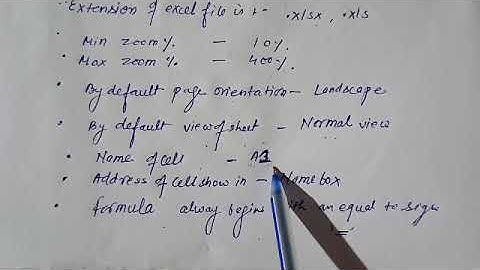 Extension of excel file is :- .xlsx, .xls
• Min zoom % — 10%
• Max zoom % — 400%.
• By default page orientation — Landscape
• By default view of sheet — Normal view
• Name of cell — A1
• Address of cell show in — Namebox
• formula alway begins an equal to sign
'='